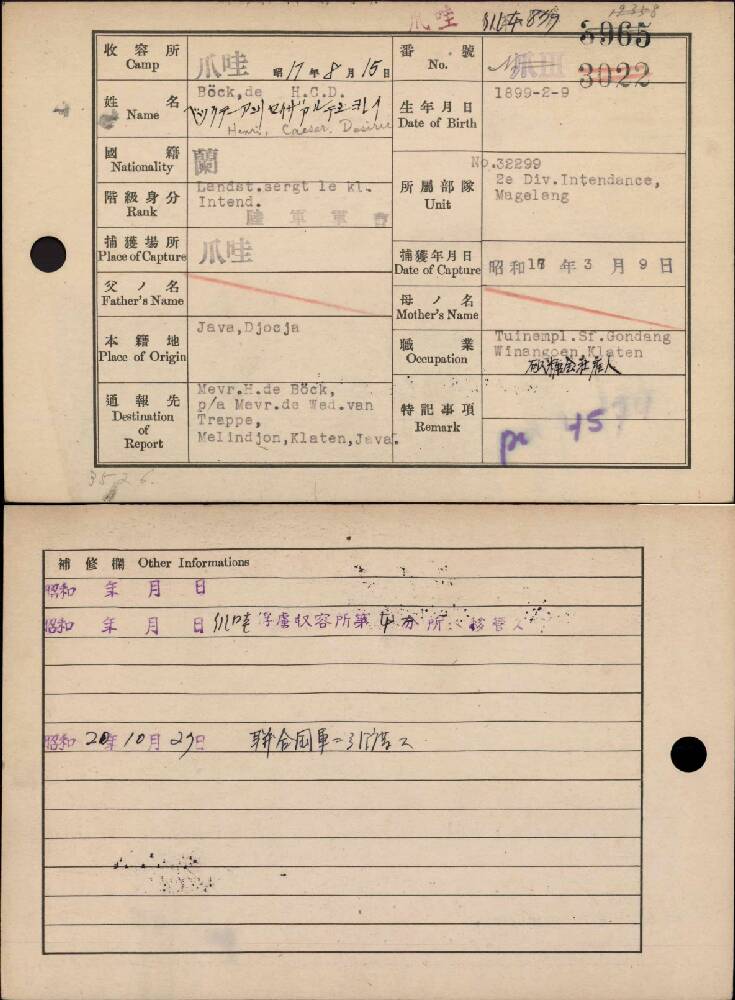 爪哇
12358
3965
收容所 Camp
爪哇 昭17年8月15日
番號 No.
3022
姓名 Name
Böck,de H.C.D.
Henri, Caesar, Desiree
生年月日 Date of Birth
1899-2-9
國籍 Nationality
蘭
階級身分 Rank
Landst.sergt 1e kl.
Intend.
所屬部隊 Unit
No.32299
2e Div.Intendance,
Magelang
捕獲場所 Place of Capture
爪哇
捕獲年月日 Date of Capture
昭和17年3月9日
父ノ名 Father's Name
母ノ名 Mother's Name
本籍地 Place of Origin
Java,Djocja
職業 Occupation
Tuinempl.Sf.Gondang
Winangoen,Klaten
通報先 Destination of Report
Mevr.H.de Böck,
p/a Mevr.de Wed.van
Treppe,
Melindjon,Klaten,Java.
特記事項 Remark
45
3526.
補修欄 Other Informations
昭和 年 月 日
昭和 年 月 日 爪哇俘虜収容所第 分所
昭和20年10月27日 聯合国軍ニ引渡ス